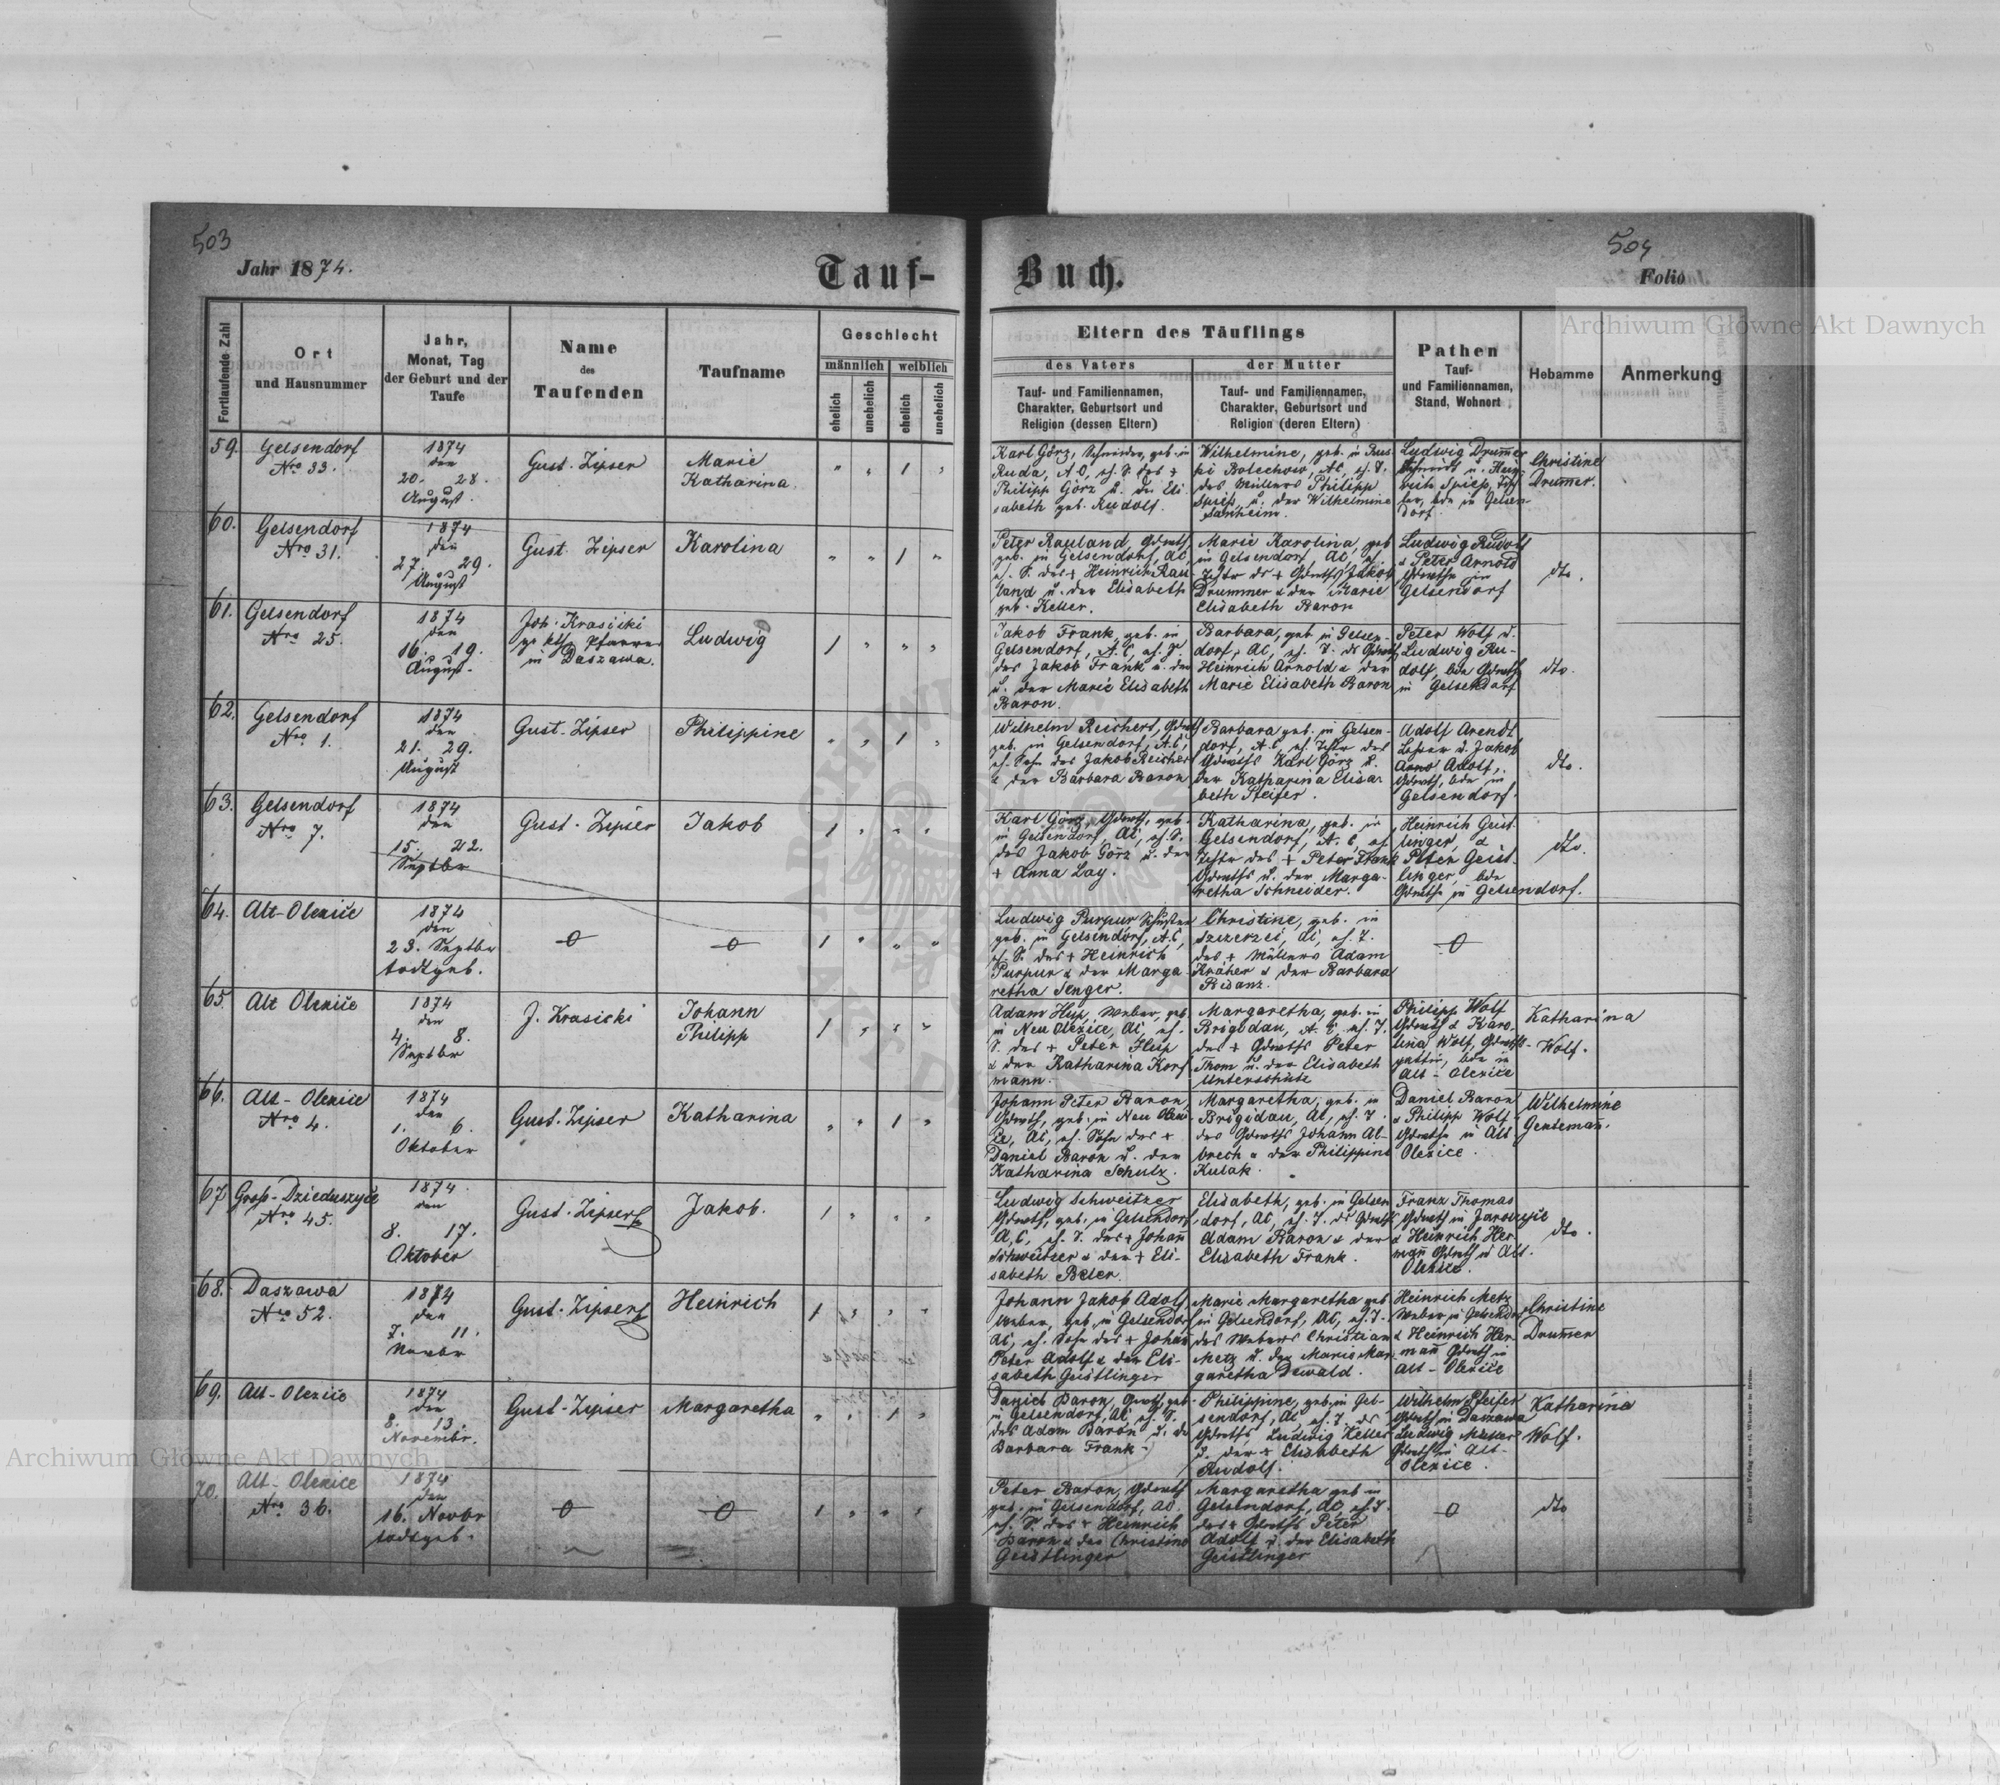 503
Jahr 1874.
Tauf-
Buch.
504
Folio
Archiwum Główne Akt Dawnych
Fortlaufende Zahl
Ort
und Hausnummer
Jahr,
Monat, Tag
der Geburt und der
Taufe
Name
des
Taufenden
Taufname
Geschlecht
männlich
weiblich
ehelich
unehelich
ehelich
unehelich
Eltern des Täuflings
des Vaters
Tauf- und Familiennamen,
Charakter, Geburtsort und
Religion (dessen Eltern)
der Mutter
Tauf- und Familiennamen,
Charakter, Geburtsort und
Religion (deren Eltern)
Pathen
Tauf-
und Familiennamen,
Stand, Wohnort
Hebamme
Anmerkung
59.
Gelsendorf
Nro 33.
1874
den
20. 28.
August.
Gust. Zipser
Marie
Katharina.
" " 1 "
Karl Görz, Schneider, geb. in
Ruda, A.C, eh. S. des +
Philipp Görz u. der Eli-
sabeth geb. Rudolf.
Wilhelmine, geb. in Rus-
ki Bolechow, AC, eh. T.
des Müllers Philipp
Spieß u. der Wilhelmine
Sanheim.
Ludwig Drum̄er
Schmidt u. Hein-
rich Spieß,
bde in Gelsen-
dorf.
Christine
Drum̄er.
60.
Gelsendorf
Nro 31.
1874
den
27. 29.
August
Gust. Zipser
Karolina
" " 1 "
Peter Rauland, Gdrwth
geb. in Gelsendorf, AC,
eh. S. des + Heinrich Rau-
land u. der Elisabeth
geb. Keller.
Marie Karolina, geb
in Gelsendorf, AC, eh.
Tchtr ds + Gdrwths Jakob
Drummer & der Marie
Elisabeth Baron
Ludwig Rudolf
& Peter Arnold
Gdrwthe in
Gelsendorf
dto.
61.
Gelsendorf
Nro 25.
1874
den
16. 19.
August.
Joh. Krasicki
gr kth Pfarrer
in Daszawa.
Ludwig
1 " " "
Jakob Frank, geb. in
Gelsendorf, A.C, eh. S.
des Jakob Frank u. der
u. der Marie Elisabeth
Baron.
Barbara, geb. in Gelsen-
dorf, AC, eh. T. ds Gdrwth
Heinrich Arnold & der
Marie Elisabeth Baron
Peter Wolf u.
Ludwig Ru-
dolf, bde Gdrwth
in Gelsendorf
dto.
62.
Gelsendorf
Nro 1.
1874
den
21. 29.
August
Gust. Zipser
Philippine
" " 1 "
Wilhelm Reichert, Gdrwth
geb. in Gelsendorf, A.C,
eh. Sohn des Jakob Reichert
& der Barbara Baron
Barbara geb. in Gelsen-
dorf, A.C, eh. Tchtr des
Gdrwths Karl Görz u.
der Katharina Elisa-
beth Pfeifer.
Adolf Arendt
Lehrer u. Jakob
Adolf,
Gdrwth, bde in
Gelsendorf.
dto.
63.
Gelsendorf
Nro 7.
1874
den
15. 22.
Septbr
Gust. Zipser
Jakob
1 " " "
Karl Görz, Gdrwth, geb.
in Gelsendorf AC, eh. S.
des Jakob Görz u. der
+ Anna Lay.
Katharina, geb. in
Gelsendorf, A.C, eh
Tchtr des + Peter Frank
Gdrwths u. der Marga-
retha Schneider.
Heinrich Geist-
linger, &
Peter Geist-
linger, bde
Gdrwthe in Gelsendorf.
dto.
64.
Alt-Olexice
1874
den
23. Septbr
todtgeb.
—0—
—0—
1 " " "
Ludwig Purpur Schuster
geb. in Gelsendorf, A.C,
eh. S. des + Heinrich
Purpur & der Marga-
retha Senger.
Christine, geb. in
Szczerzec, AC, eh. T.
des + Müllers Adam
Kräher & der Barbara
Bisanz.
—0—
65.
Alt Olexice
1874
den
4. 8.
Septbr
J. Krasicki
Johann
Philipp
1 " " "
Adam Hup, Weber, geb
in Neu Olexice, AC, eh.
S. des + Peter Hup
& der Katharina Korf-
mann.
Margaretha, geb. in
Brigidau, A.C, eh. T.
des + Gdrwths Peter
Thom u. der Elisabeth
Unterschütz
Philipp Wolf
Gdrwth & Karo-
lina Wolf, Gdrwths-
gattin, bde in
Alt-Olexice
Katharina
Wolf.
66.
Alt-Olexice
Nro 4.
1874
den
1. 6.
Oktober
Gust. Zipser
Katharina
" " 1 "
Johann Peter Baron,
Gdrwth, geb. in Neu Olexi-
ce, AC, eh. Sohn des +
Daniel Baron u. der
Katharina Schulz.
Margaretha, geb. in
Brigidau, AC, eh. T.
des Gdrwths Johann Al-
brech & der Philippine
Kulak.
Daniel Baron
& Philipp Wolf
Gdrwthe in Alt
Olexice.
Wilhelmine
Genteman̄.
67.
Groß-Dzieduszyce
Nro 45.
1874
den
8. 17.
Oktober
Gust. Zipser
Jakob.
1 " " "
Ludwig Schweitzer
Gdrwth, geb. in Gelsendorf
A.C, eh. S. des + Johan̄
Schweitzer & der + Eli-
sabeth Beter.
Elisabeth, geb. in Gelsen-
dorf, AC, eh. T. ds Gdrwths
Adam Baron & der
Elisabeth Frank.
Franz Thomas
Gdrwth in Jaroszyce
& Heinrich Her-
man̄ Gdrwth in Alt.
Olexice.
dto.
68.
Daszawa
Nro 52.
1874
den
7. 11.
Novbr
Gust. Zipser
Heinrich
1 " " "
Johann Jakob Adolf
Weber, geb. in Gelsendorf
AC, eh. Sohn des + Johan̄
Peter Adolf & der Eli-
sabeth Geistlinger
Marie Margaretha geb
in Gelsendorf, AC, eh. T.
des Webers Christian
Metz u. der Marie Mar-
garetha Dewald.
Heinrich Metz
Weber in Gelsendorf
& Heinrich Her-
man̄ Gdrwth in
Alt-Olexice
Christine
Drum̄er
69.
Alt-Olexice
1874
den
8. 13.
Novembr.
Gust. Zipser
Margaretha
" " 1 "
Daniel Baron, Gdrwth, geb.
in Gelsendorf, AC, eh. S.
des Adam Baron u. der
Barbara Frank.
Philippine, geb. in Gel-
sendorf, AC, eh. T. ds
Gdrwths Ludwig Keller
u. der + Elisabeth
Rudolf.
Wilhelm Pfeifer
Gdrwth in Daszawa
Ludwig Müller
Gdrwth in Alt-
Olexice.
Katharina
Wolf.
70.
Alt-Olexice
Nro 36.
1874
den
16. Novbr
todtgeb.
—0—
—0—
1 " " "
Peter Baron, Gdrwth
geb. in Gelsendorf, AC.
eh. S. des + Heinrich
Baron & der Christine
Geistlinger
Margaretha geb in
Gelsendorf, AC, eh. T.
des + Gdrwths Peter
Adolf u. der Elisabeth
Geistlinger
—0—
dto
Archiwum Główne Akt Dawnych